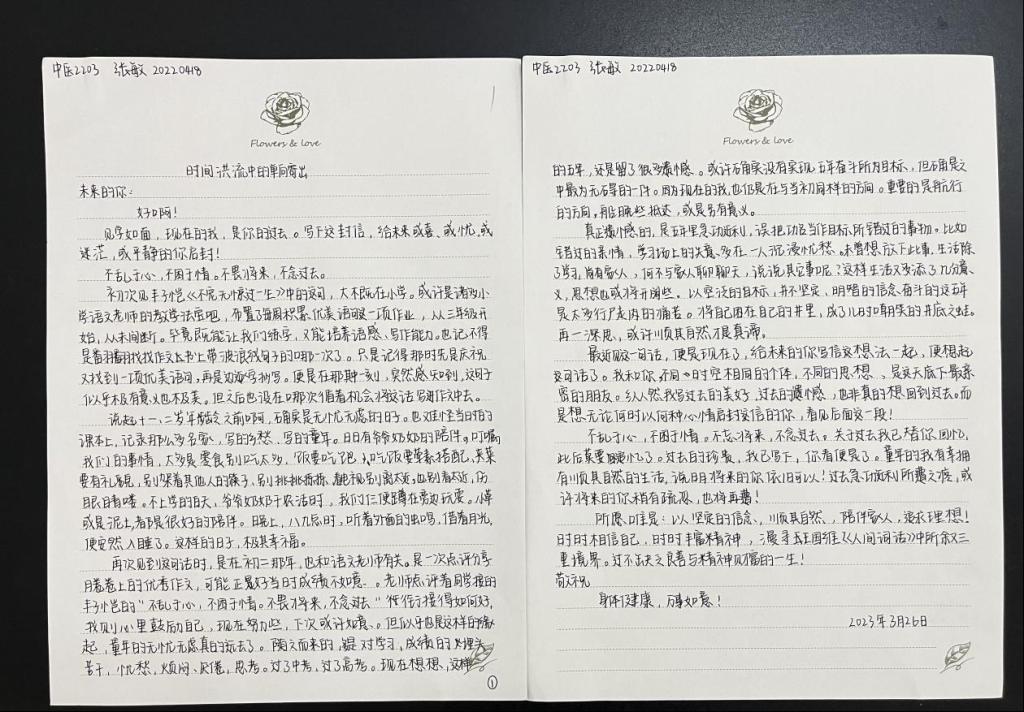 中医2203 张敏 20220418
Flowers & love
时间洪流中的单向寄出
未来的你：
好啊！
见字如面，现在的我，是你的过去。写下这封信，给未来或喜、或忧、或
迷茫，或平静的你启封！
不乱于心，不困于情。不畏将来，不念过去。
初次见丰子恺《不宠无惊过一生》中的这句，大概在小学。或许是诸多小
学语文老师的教学法宝吧，布置了每周积累优美语句这一项作业，从三年级开
始，从未间断。毕竟既能让我们练字，又能培养语感、写作能力。也记不得
是翻找作文书上带波浪线句子的哪一次了。只是记得那时先是庆祝
又找到一项优美语句，再是边读边抄写。便是在那一刻，突然感知到，这句子
似乎极有意义也极美。但之后也没在哪次借着机会将这话写到作文中去。
说起十一、二岁年龄之前啊，确实是无忧无虑的日子。也难怪当时的
课本上，记录那么多名家，写的乡愁、写的童年。日日有爷爷奶奶的陪伴。叮嘱
我们的事情，大多是零食别吃太多，饭要吃饱，吃饭要荤素搭配，夹菜
要有礼貌，别架着其他人的筷子，别挑挑拣拣，看电视别离太近，也别看太近，伤
眼睛看喽。不上学的天，爷爷奶奶干农活时，我们仨便蹲在旁边玩耍。小草
或是泥土，都是很好的陪伴。晚上，八九点时，听着外面的虫鸣，借着月光，
便安然入睡了。这样的日子，极其幸福。
再次见到这句话时，是在初三那年，也和语文老师有关。是一次点评分享
月考卷上的优秀作文，可能正是好当时成绩不如意。老师点评着同学摘的
丰子恺的“不乱于心，不困于情。不畏将来，不念过去”衔接得如何好，
我则心里鼓励自己，现在努力些，下次或许如意。但似乎也是这样的
起，童年的无忧无虑真的远去了。随之而来的，是对学习、成绩的
苦干，忧愁，烦闷、厌倦，思考。过了中考，过了高考。现在想想，这样
①
中医2203 张敏 20220418
Flowers & love
的五年，还是留了很多遗憾。或许的确没有实现五年奋斗所为目标，但的确是之
中最为无碍的一件。因为现在的我，也仍是在与当初同样的方向。重要的是航行
的方向，能晚些抵达，或是另有意义。
真正遗憾的，是五年里急功近利，误把功名当作目标，所错过的事物。比如
错过的亲情，学习场上的失意，多在一人沉浸忧愁。未曾想放下此事，生活除
了学习，尚有家人，何不与家人聊聊天，说说其它事呢？这样生活又多添了几分意
义，思想也或将开阔些。以坚定的目标，并不坚定、明晰的信念奋斗的这五年
是太多行尸走肉的痛苦。将自己困在自己的井里，成了儿时嘲笑的井底之蛙。
再一深思，或许顺其自然才是真谛。
最近见这句话，便是现在了，给未来的你写信这想法一起，便想起
这句话了。我和你，不同时空相同的个体，不同的思想、是这天底下最亲
密的朋友。纵然我写过去的美好、过去的遗憾，也非真的想回到过去。而
是想无论何时以何种心情启封这信的你，看见后面这一段！
不乱于心，不困于情。不忘将来，不念过去。关于过去我已替你回忆，
此后莫要频忆了。过去的珍贵，我已写下，你看便是了。童年的我有幸拥
有顺其自然的生活，说明将来的你依旧可以！过去急功近利所费之度，或
许将来的你稍有疏忽，也将再费！
所愿唯是：以坚定的信念，顺其自然，陪伴家人，追求理想！
时时相信自己，时时丰富精神，漫寻着王国维《人间词话》中所叙三
重境界。过不击夫之良善与精神财富的一生！
敬祝
身体健康，万事如意！
2023年3月26日